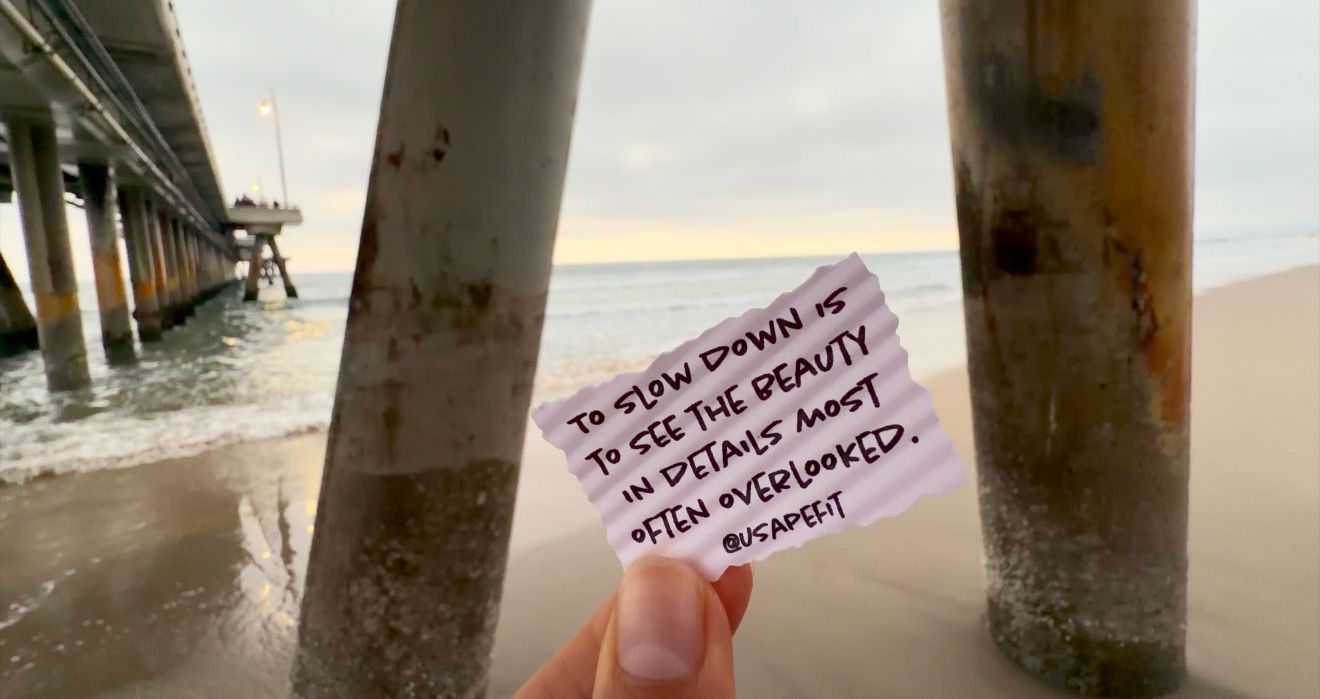 TO SLOW DOWN IS
TO SEE THE BEAUTY
IN DETAILS MOST
OFTEN OVERLOOKED.
@USAPEFIT